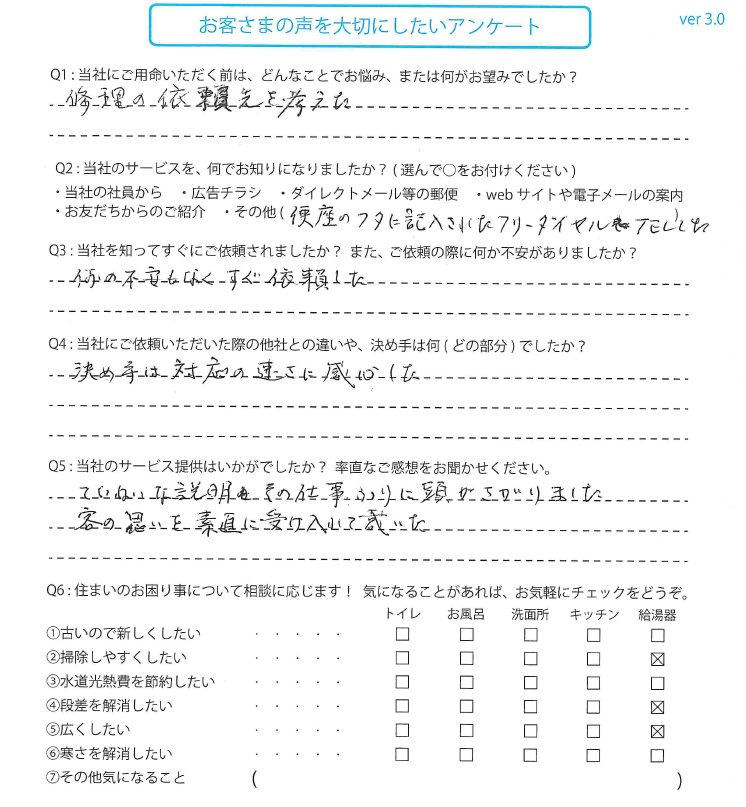 お客さまの声を大切にしたいアンケート
ver 3.0
Q1 : 当社にご用命いただく前は、どんなことでお悩み、または何がお望みでしたか？
修理の依頼先を考えた
Q2 : 当社のサービスを、何でお知りになりましたか？ ( 選んで○をお付けください )
・当社の社員から ・広告チラシ ・ダイレクトメール等の郵便 ・web サイトや電子メールの案内
・お友だちからのご紹介 ・その他 ( 便座のフタに記入されたフリーダイヤルへTELした )
Q3 : 当社を知ってすぐにご依頼されましたか？ また、ご依頼の際に何か不安がありましたか？
何の不安もなくすぐ依頼した
Q4 : 当社にご依頼いただいた際の他社との違いや、決め手は何 ( どの部分 ) でしたか？
決め手は対応の速さに感心した
Q5 : 当社のサービス提供はいかがでしたか？ 率直なご感想をお聞かせください。
ていねいな説明とその仕事ぶりに頭がさがりました
客の思いを素直に受け入れて戴いた
Q6 : 住まいのお困り事について相談に応じます！ 気になることがあれば、お気軽にチェックをどうぞ。
トイレ お風呂 洗面所 キッチン 給湯器
①古いので新しくしたい ・・・・・ □ □ □ □ □
②掃除しやすくしたい ・・・・・ □ □ □ □ ☒
③水道光熱費を節約したい ・・・・・ □ □ □ □ □
④段差を解消したい ・・・・・ □ □ □ □ ☒
⑤広くしたい ・・・・・ □ □ □ □ ☒
⑥寒さを解消したい ・・・・・ □ □ □ □ □
⑦その他気になること ( )